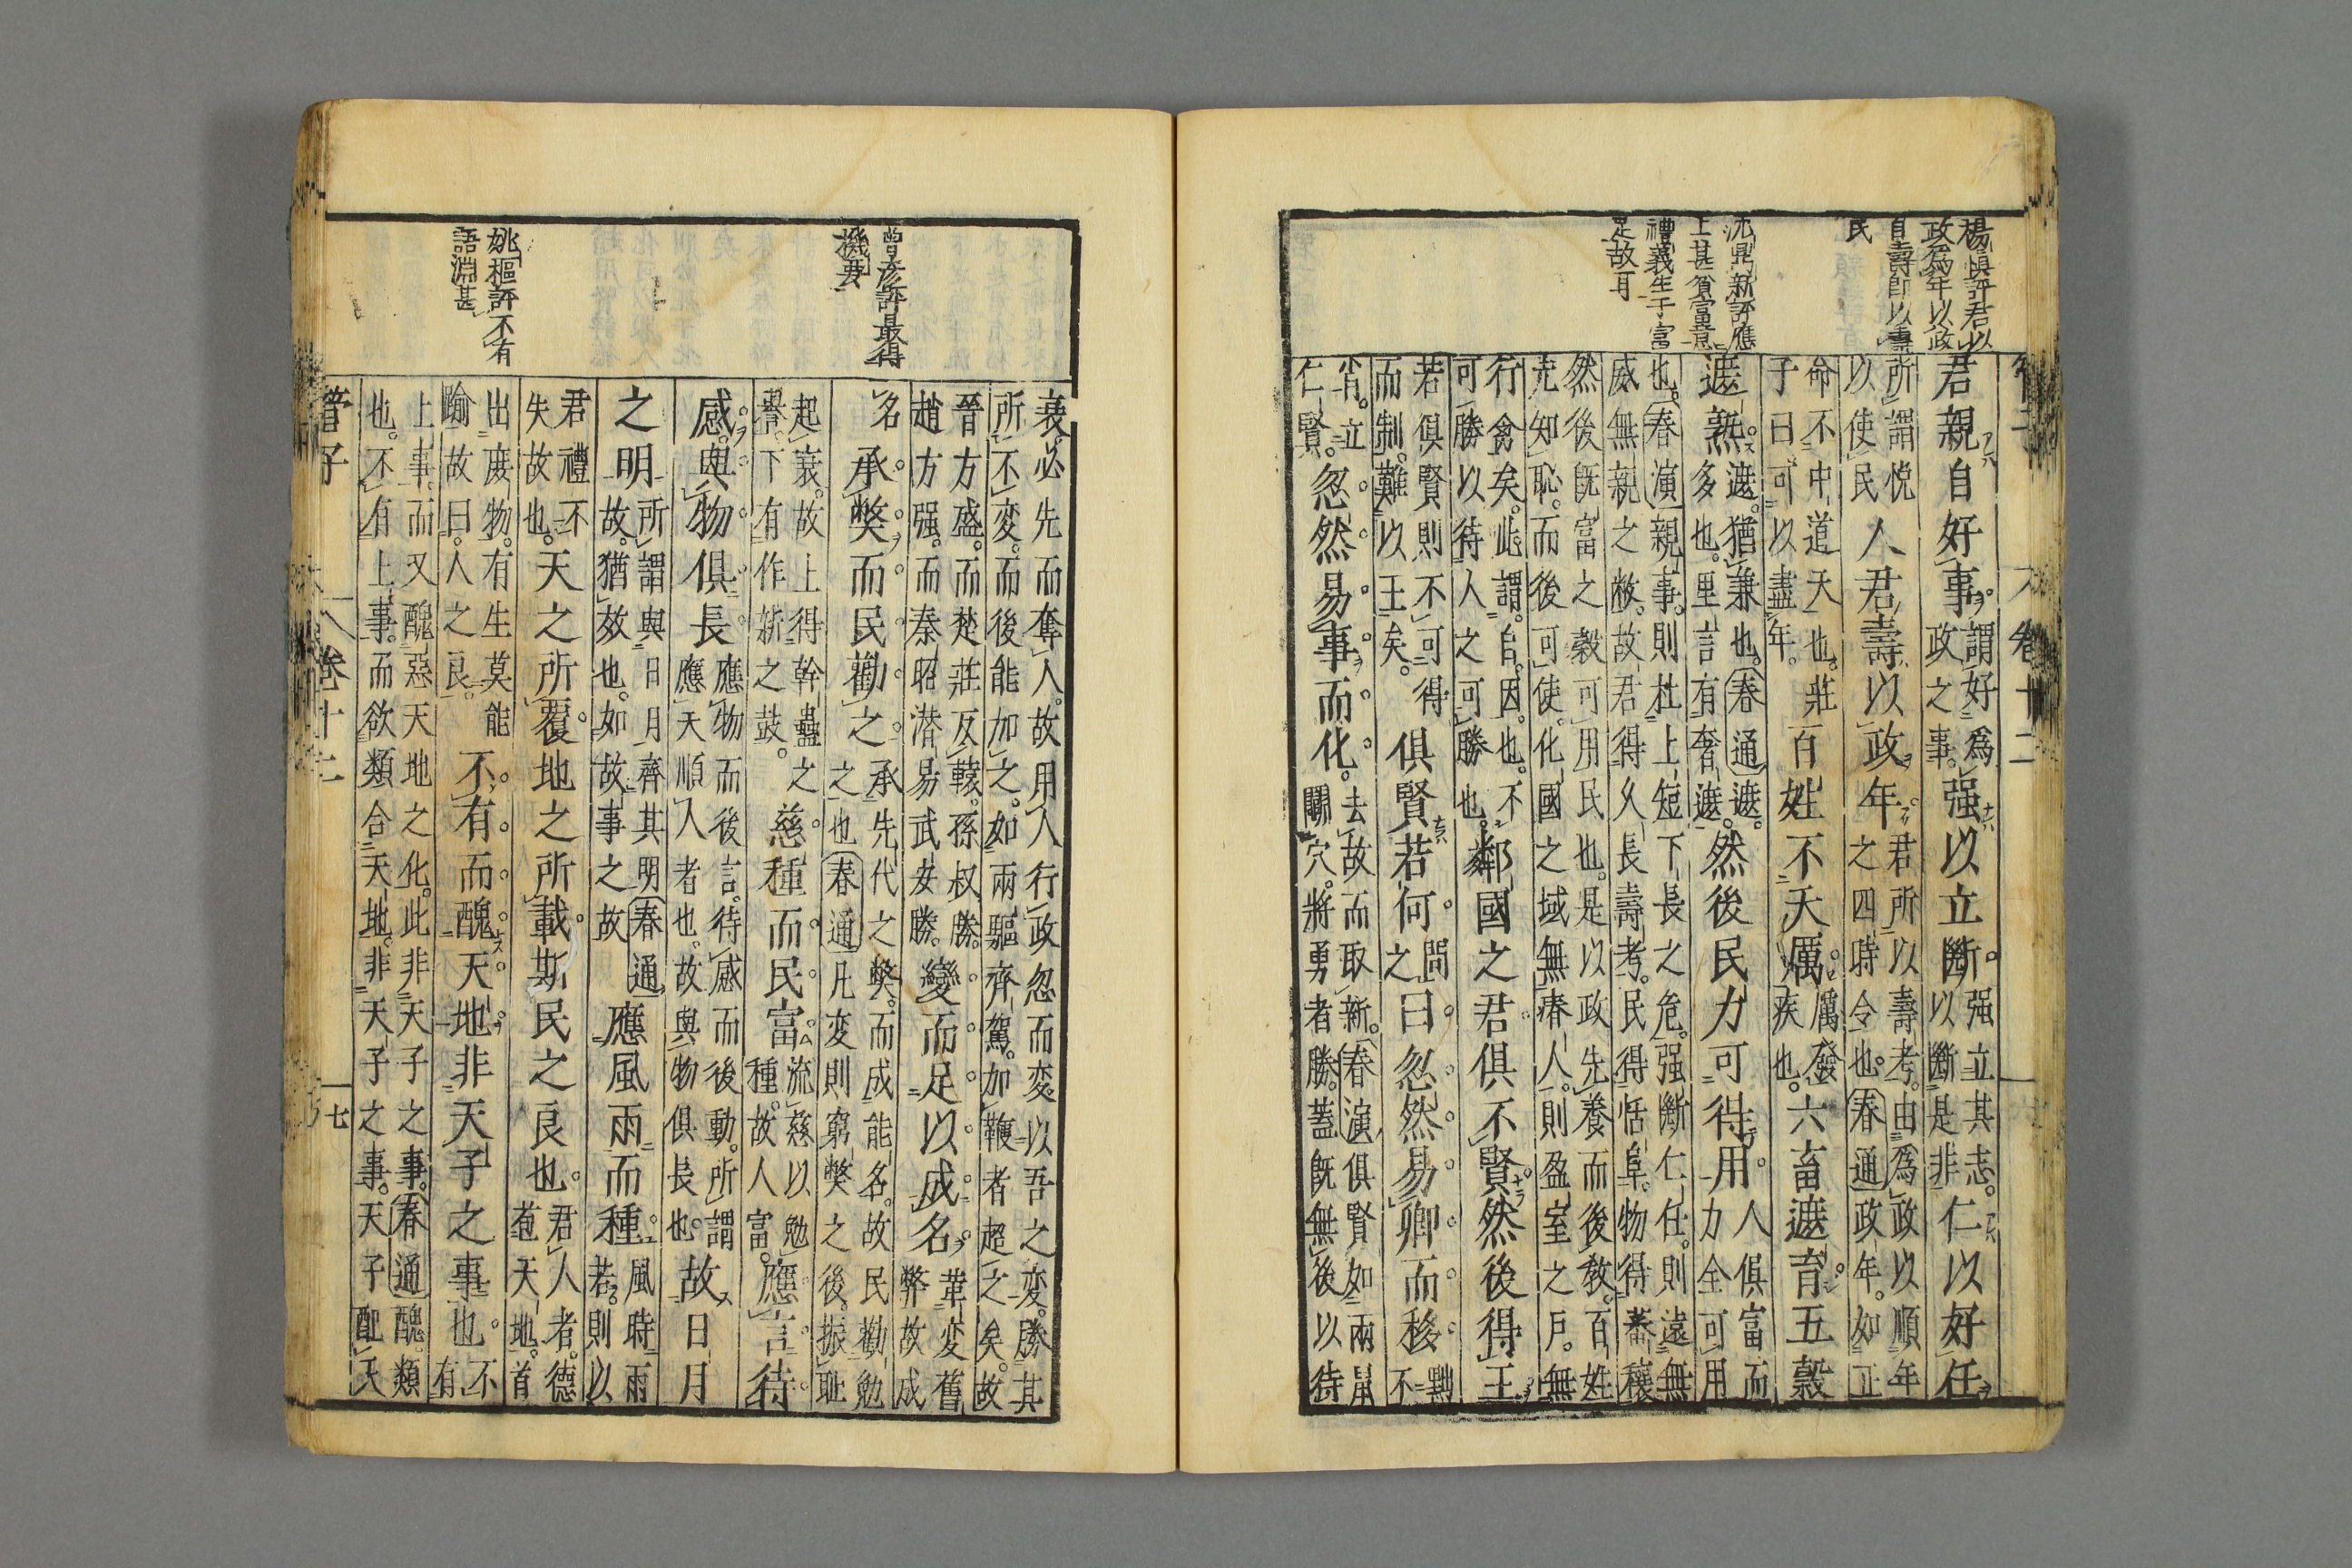 楊慎評君以
政爲年以政
自壽即以壽
民
沈鼎新評應
上甚貧富意
禮義生于富
足故耳
君親自好事謂好爲政之事强以立斷强立其志以斷是非仁以好任
所謂悅以使民人君壽以政年君所以壽考由爲政以順年之四時令也春通政年如正
命不中道天也莊子曰可以盡年百姓不夭厲厲發疾也六畜遮育五穀
遮熟遮猶兼也春通遮多也里言有奢遮然後民力可得用人俱富而力全可用
也春演親事則杜上短下長之危强斷仁任則遠無威無親之敝故君得久長壽考民得恬阜物得蕃穰
然後既富之穀可用民也是以政先養而後教百姓充知恥而後可使化國之域無瘠人則盈室之戶無
行禽矣此謂自因也不可勝以待人之可勝也鄰國之君俱不賢然後得王
若俱賢則不可得而制難以王矣俱賢若何問之曰忽然易卿而移不
肖立仁賢忽然易事而化去故而取新春演俱賢如兩鼠鬭穴將勇者勝蓋既無後以待
管子
卷十二
曾彦評最得
機要
姚樞評不有
語淵甚
衰必先而奪人故用人行政忽而変以吾之変勝其
所不変而後能加之如兩驅齊駕加鞭者超之矣故
晉方盛而楚莊反轅孫叔勝趙方强而秦昭潜易武安勝變而足以成名革変舊弊故成
名承獘而民勸之承先代之獘而成能名故民勸勉之也春通凡変則窮獘之後振耻
起衰故上得幹蠱之譽下有作新之鼓慈種而民富流慈以勉種故人富應言待
感與物俱長應物而後言待感而後動所謂應天順人者也故與物俱長也故日月
之明所謂與日月齊其明春通故猶效也如故事之故應風雨而種風時雨若則以
君禮不失故也天之所覆地之所載斯民之良也君人者德苞天地首
出庶物有生莫能踰故曰人之良不有而醜天地非天子之事也不有
上事而又醜惡天地之化此非天子之事春通醜類也不有上事而欲類合天地非天子之事天子配天
管子
卷十二
十七